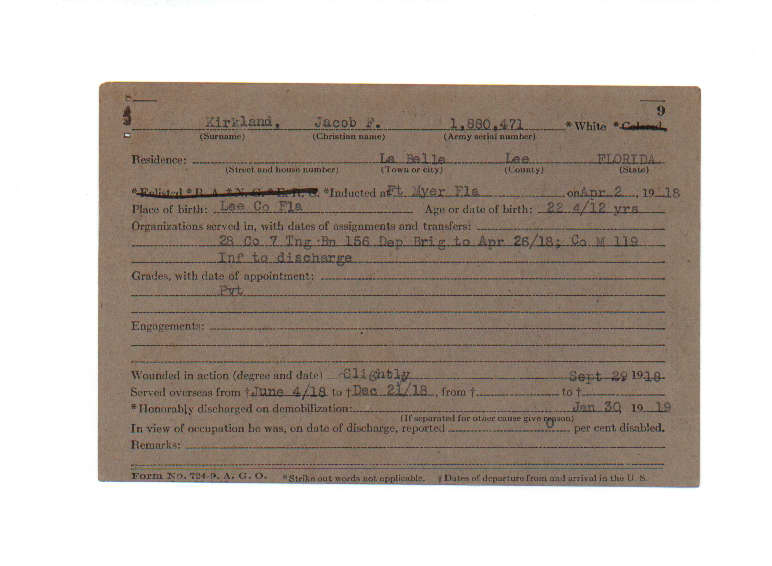 9
Kirkland, Jacob F. 1,880,471 *White *Colored.
(Surname) (Christian name) (Army serial number)
Residence: La Belle Lee FLORIDA
(Street and house number) (Town or city) (County) (State)
*Enlisted *R. A. *N. G. *E. R. C. *Inducted at Ft Myer Fla on Apr 2, 1918
Place of birth: Lee Co Fla Age or date of birth: 22 4/12 yrs
Organizations served in, with dates of assignments and transfers:
28 Co 7 Tng Bn 156 Dep Brig to Apr 26/18; Co M 119
Inf to discharge
Grades, with date of appointment:
Pvt
Engagements:
Wounded in action (degree and date) Slightly Sept 29 1918
Served overseas from †June 4/18 to †Dec 21/18, from † to †
*Honorably discharged on demobilization: Jan 30 1919
(If separated for other cause give reason)
In view of occupation he was, on date of discharge, reported 0 per cent disabled.
Remarks:
Form No. 724-9, A. G. O. *Strike out words not applicable. †Dates of departure from and arrival in the U S.